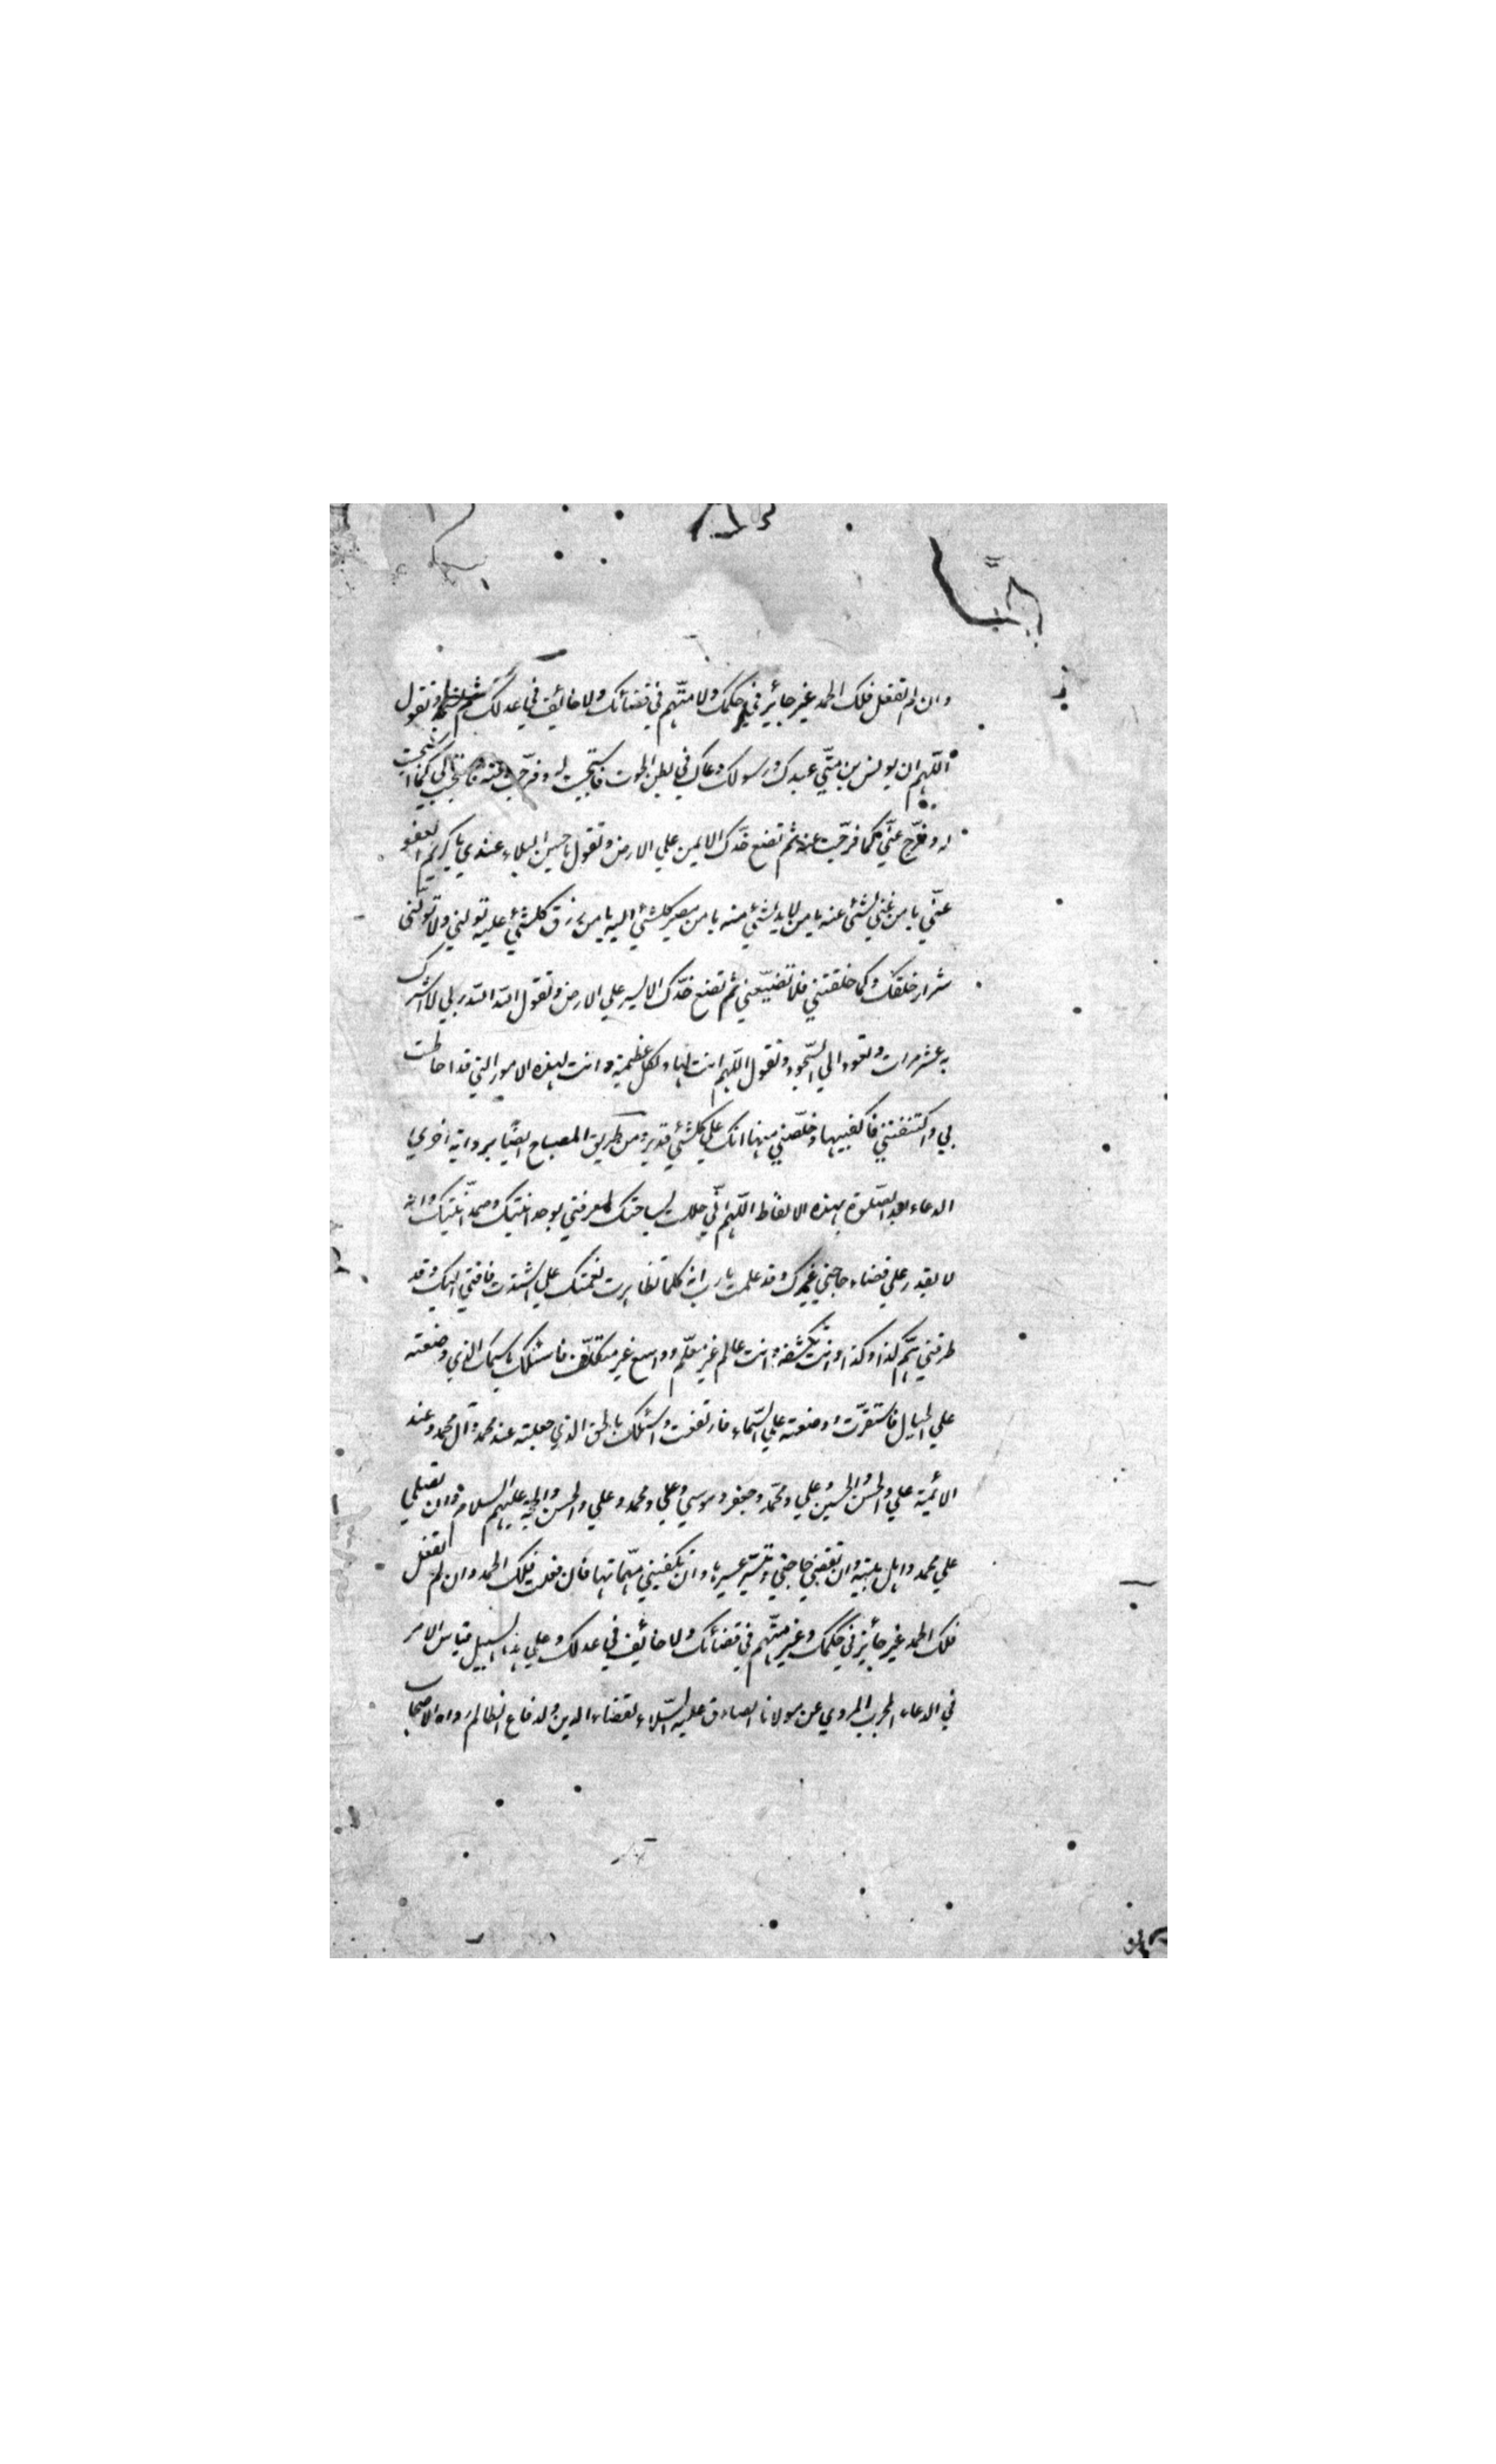 وان لم تفعل فلك الحمد غير جائر في حكمك ولا متّهم في قضائك ولا خائف في عدلك ثم وتقول
اللّهم ان يونس بن متّي عبدك ورسولك دعاك في بطن الحوت فاستجبت له وفرّجت عنه فاستجب لي كما استجبت
له وفرّج عنّي كما فرّجت عنه ثم تضع خدّك الايمن علي الارض وتقول يا حسن البلاء عندي يا كريم العفو
عنّي يا من لا غني لشئ عنه يا من لا بد لشئ منه يا من مصير كلشئ اليه يا من رزق كلشئ عليه تولني ولا تولّني
شرار خلقك وكما خلقتني فلا تضيّعني ثم تضع خدّك الايسر علي الارض وتقول اللّه اللّه ربي لا اشرك
به عشر مرات وتعود الي السّجود وتقول اللّهم انت لها ولكل عظيمة وانت لهذه الامور التي قد احاطت
بي واكتنفتني فاكفنيها وخلّصني منها انك علي كلشئ قدير ومن طريق المصباح ايضًا برواية اخري يا
الدعاء بعد الصّلوة بهذه الالفاظ اللّهم انّي حللت بساحتك لمعرفتي بوحدانيتك وصمدانيّتك وانه
لا يقدر علي قضاء حاجتي غيرك وقد علمت يا رب انه كلما تظاهرت نعمتك علي اشتدت فاقتي اليك وقد
طرقني همّ كذا وكذا وانت تكشفه وانت عالم غير معلّم وواسع غير متكلّف فاسئلك باسمك الذي وضعته
علي الجبال فاستقرّت ووضعته علي السّماء فارتفعت واسئلك بالحق الذي جعلته عند محمد وآل محمد وعند
الائمية علي والحسن والحسين وعلي ومحمّد وجعفر وموسي وعلي ومحمد وعلي والحسن والحجة عليهم السلام وان تصلي
علي محمد واهل بيته وان تقضي حاجتي وتيسّر عسيرها وان تكفيني مهّماتها فان فعلت فلك الحمد وان لم تفعل
فلك الحمد غير جائر في حكمك وغير متّهم في قضائك ولا خائف في عدلك وعلي هذا السبيل قياس الامر
في الدعاء المجرب المروي عن مولانا الصادق عليه السّلاء لقضاء الدين ولدفاع الظالم رواه الاصحاب